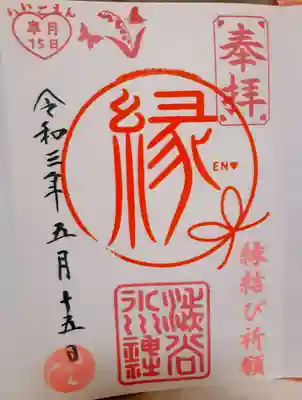 奉拝
いいごえん
皐月
15日
縁
EN♥
縁結び祈願
令和三年五月十五日
渋谷
氷川神社